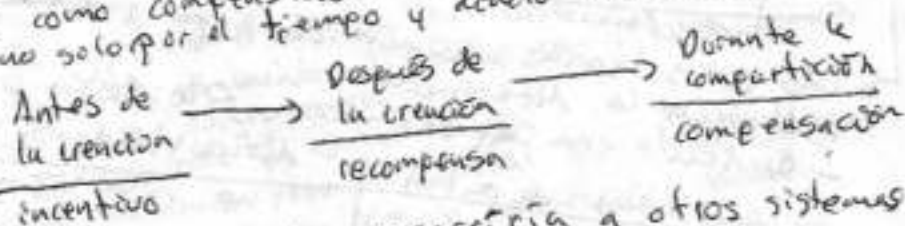 como
no solo por el tiempo y
Antes de la creación → Después de la creación → Durante la compartición
incentivo recompensa compensación
a otros sistemas